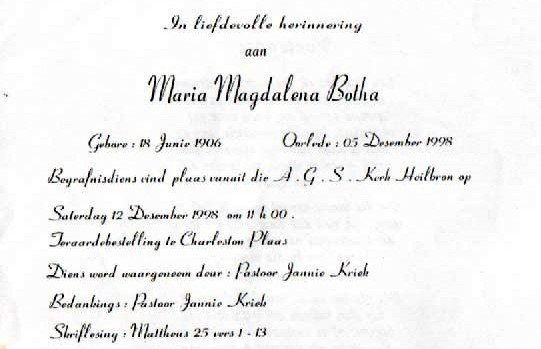 In liefdevolle herinnering
aan
Maria Magdalena Botha
Gebore : 18 Junie 1906 Oorlede : 05 Desember 1998
Begrafnisdiens vind plaas vanuit die A . G . S . Kerk Heilbron op
Saterdag 12 Desember 1998 om 11 h 00 .
Teraardebestelling te Charleston Plaas
Diens word waargeneem deur : Pastoor Jannie Kriek
Bedankings : Pastoor Jannie Kriek
Skriflesing : Mattheus 25 vers 1 - 13